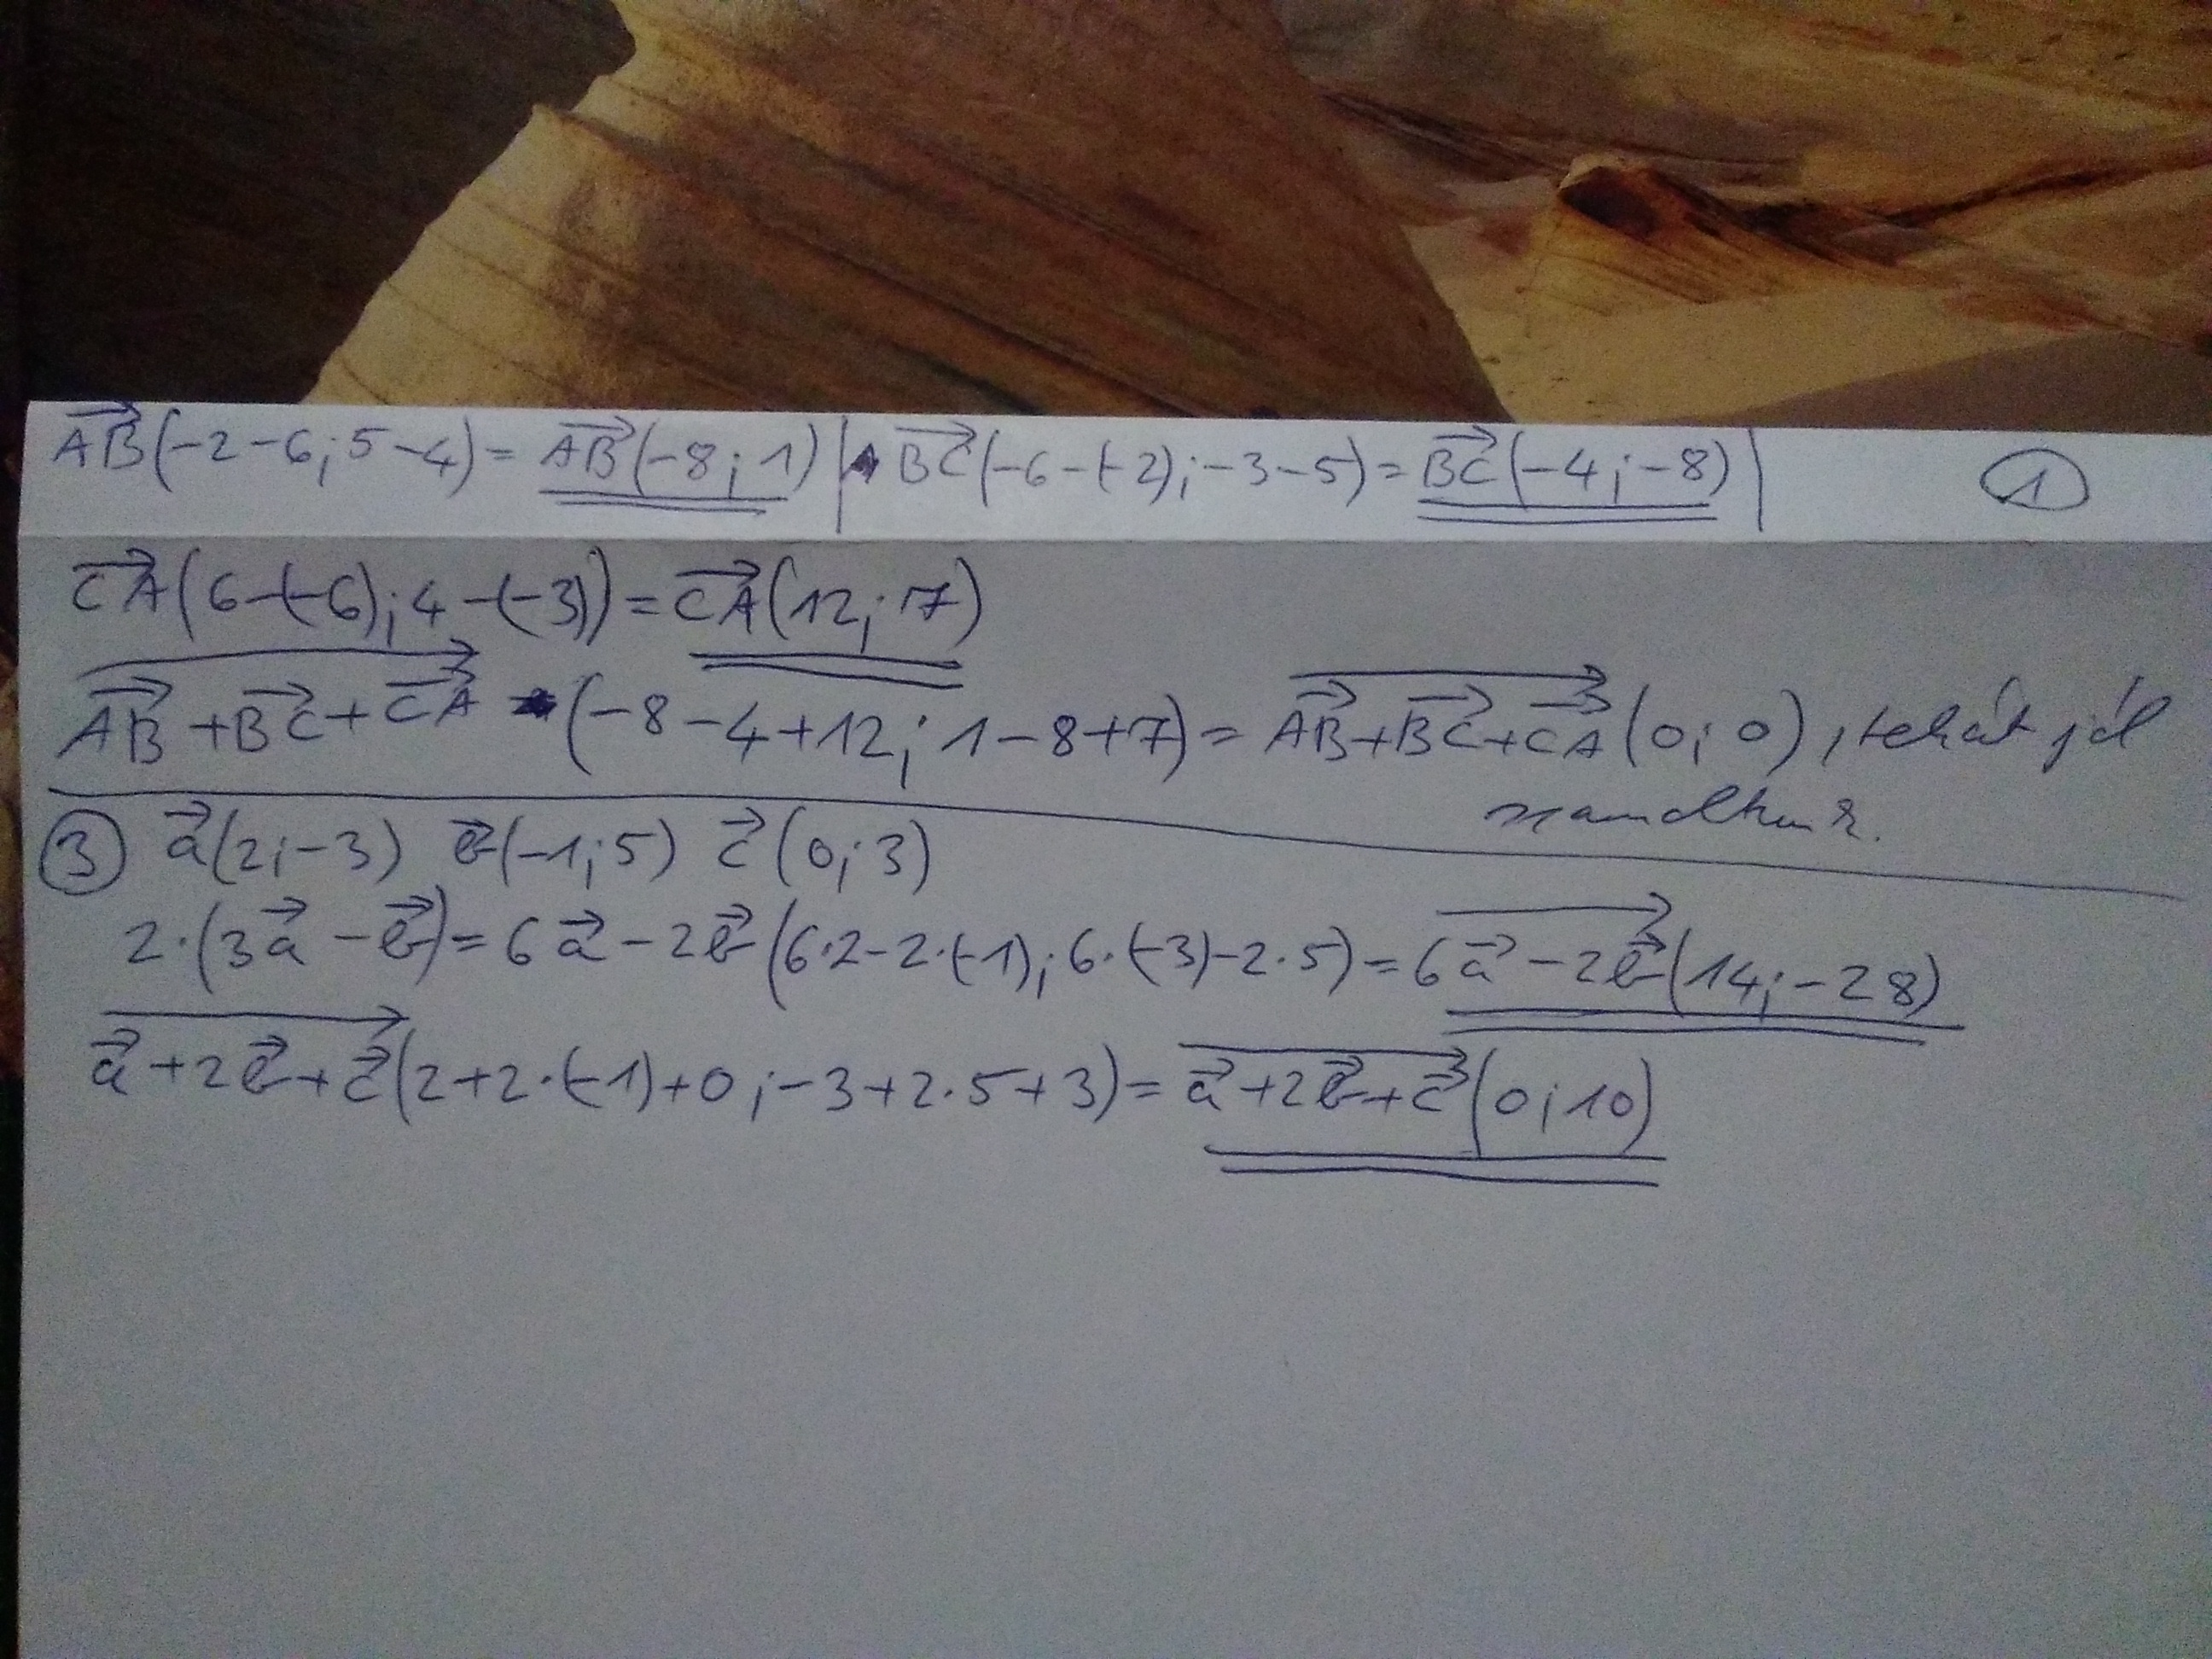 AB⃗(-2-6;5-4)=AB⃗(-8;1)|BC⃗(-6-(-2);-3-5)=BC⃗(-4;-8)| ①
CA⃗(6-(-6);4-(-3))=CA⃗(12;7)
AB⃗+BC⃗+CA⃗ (-8-4+12;1-8+7)=AB⃗+BC⃗+CA⃗(0;0), tehát jól
számoltunk.
③ a⃗(2;-3) b⃗(-1;5) c⃗(0;3)
2·(3a⃗-b⃗)=6a⃗-2b⃗(6·2-2·(-1);6·(-3)-2·5)=6a⃗-2b⃗(14;-28)
a⃗+2b⃗+c⃗(2+2·(-1)+0;-3+2·5+3)=a⃗+2b⃗+c⃗(0;10)